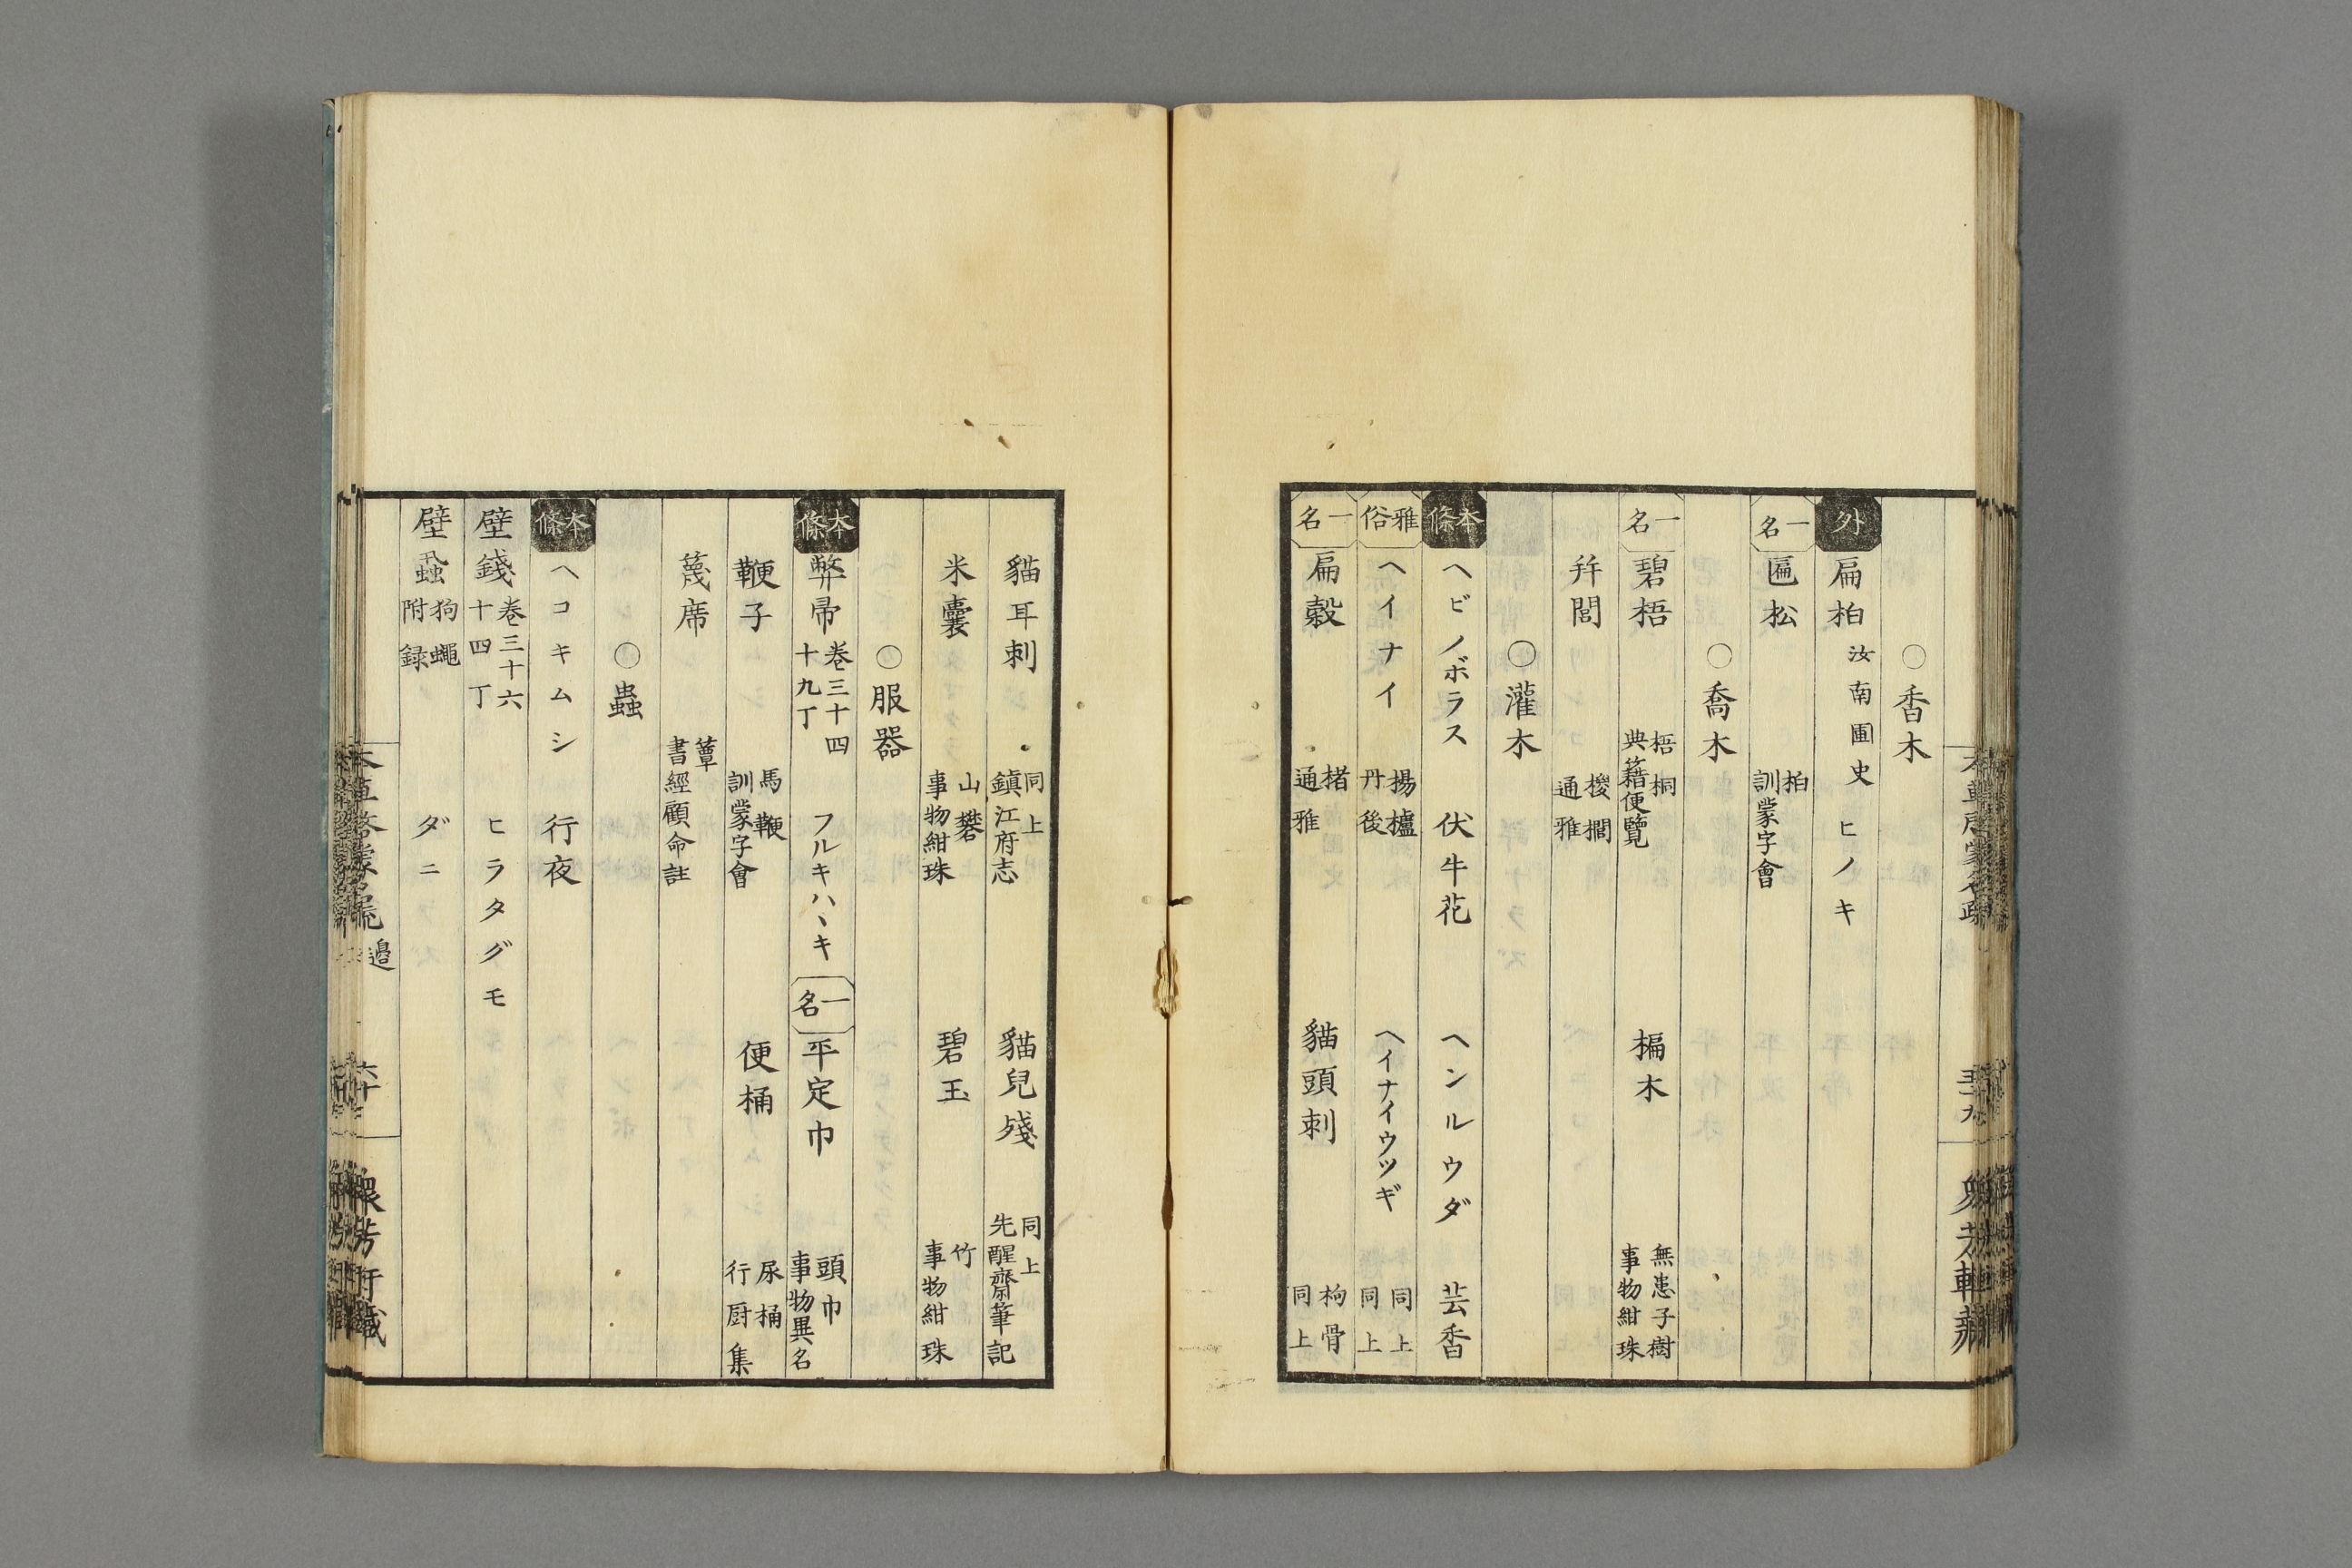 ○香木
外 扁柏 汝南圃史 ヒノキ
一名 匾松 柏 訓蒙字會
○喬木
一名 碧梧 梧桐 典籍便覽 楄木 無患子樹 事物紺珠
幷閭 椶櫚 通雅
○灌木
本條 ヘビノボラス 伏牛花 ヘンルウダ 芸香
雅俗 ヘイナイ 楊櫨 丹後 ヘイナイウツギ 同上 同上
一名 扁穀 楮 通雅 貓頭刺 枸骨 同上
貓耳刺 同上 鎮江府志 貓兒殘 同上 先醒齋筆記
米囊 山礬 事物紺珠 碧玉 竹 事物紺珠
○服器
本條 弊帚 卷三十四 十九丁 フルキハヽキ 一名 平定巾 頭巾 事物異名
鞭子 馬鞭 訓蒙字會 便桶 尿桶 行厨集
篾席 簟 書經顧命註
○蟲
本條 ヘコキムシ 行夜
壁錢 卷三十六 十四丁 ヒラタグモ
壁蝨 狗蠅 附録 ダニ
邉
六十